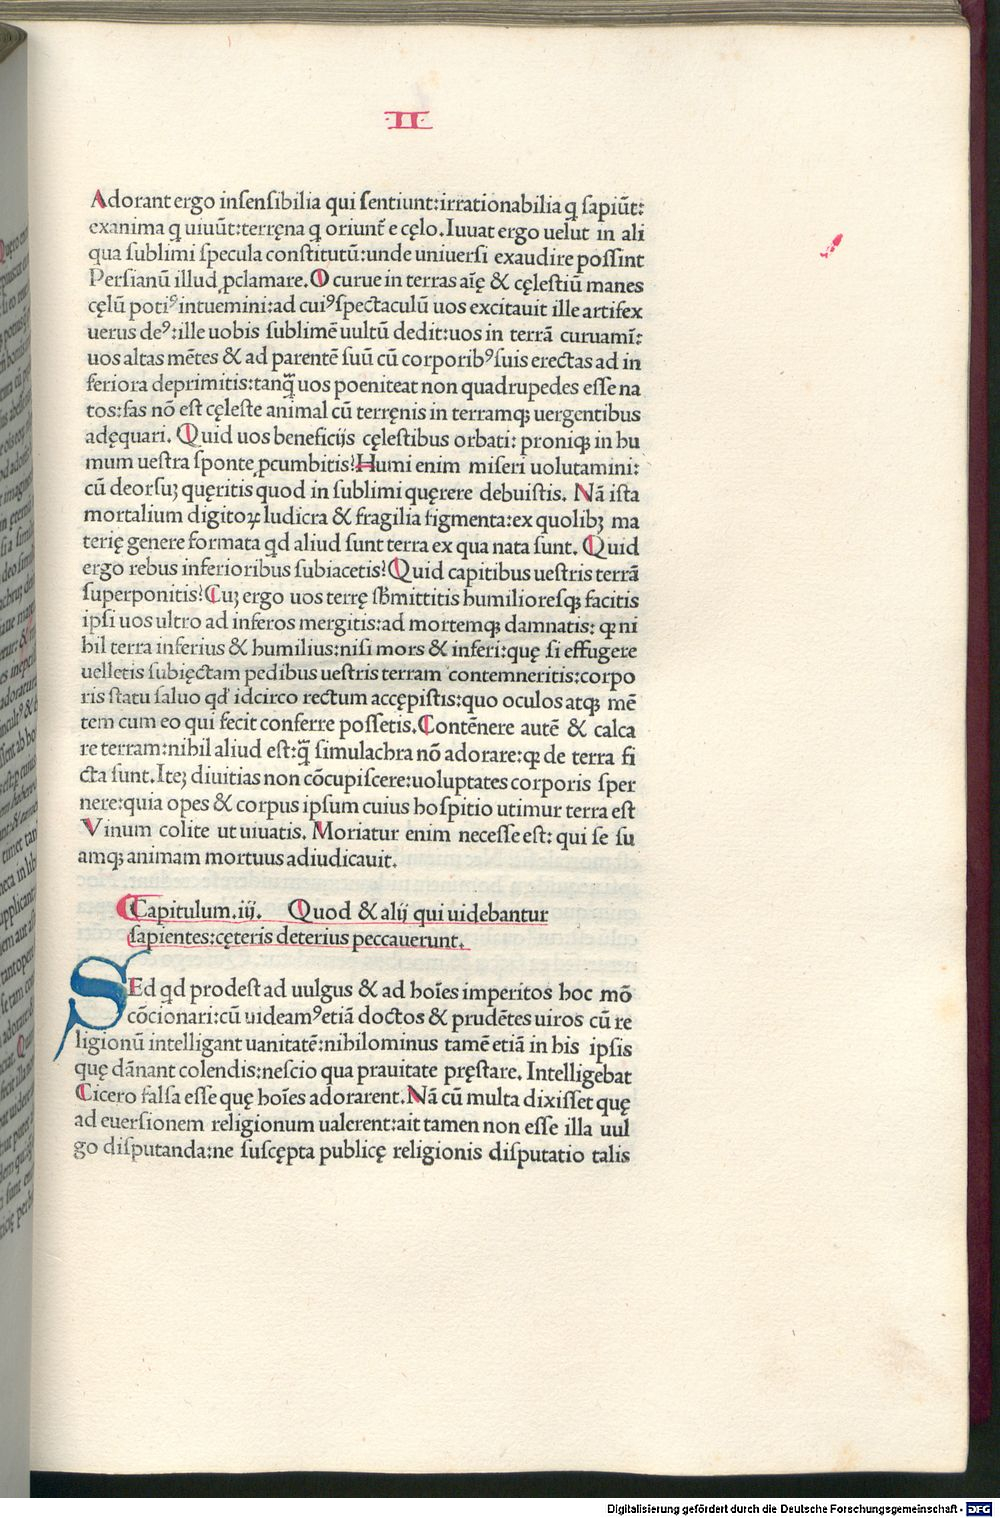 ·II·
Adorant ergo inſenſibilia qui ſentiunt:irrationabilia q ſapiūt:
exanima q uiuūt:terręna q oriunt̄ e cęlo.Iuuat ergo uelut in ali
qua ſublimi ſpecula conſtitutū:unde uniuerſi exaudire poſſint
Perſianū illud ꝓclamare.O curue in terras aīę & cęleſtiū manes
cęlū potiꝰ intuemini:ad cuiꝰ ſpectaculū uos excitauit ille artifex
uerus deꝰ:ille uobis ſublimē uultū dedit:uos in terrā curuamī:
uos altas mētes & ad parentē ſuū cū corporibꝰ ſuis erectas ad in
feriora deprimitis:tanq̄ uos poeniteat non quadrupedes eſſe na
tos:fas nō eſt cęleſte animal cū terręnis in terramqꝫ uergentibus
adęquari. Quid uos beneficijs cęleſtibus orbati: proniqꝫ in hu
mum ueſtra ſponte ꝓcumbitis?Humi enim miſeri uolutamini:
cū deorſuꝫ quęritis quod in ſublimi quęrere debuiſtis. Nā iſta
mortalium digitoꝝ ludicra & fragilia figmenta:ex quolibꝫ ma
terię genere formata qd aliud ſunt terra ex qua nata ſunt. Quid
ergo rebus inferioribus ſubiacetis?Quid capitibus ueſtris terrā
ſuperponitis?Cuꝫ ergo uos terrę ſb̄mittitis humilioreſqꝫ facitis
ipſi uos ultro ad inferos mergitis:ad mortemqꝫ damnatis: qꝛ ni
hil terra inferius & humilius:niſi mors & inferi:quę ſi effugere
uelletis ſubięctam pedibus ueſtris terram contemneritis:corpo
ris ſtatu ſaluo qd̄ idcirco rectum accępiſtis:quo oculos atqꝫ mē
tem cum eo qui fecit conferre poſſetis.Contēnere autē & calca
re terram:nihil aliud eſt:q̄ ſimulachra nō adorare:qꝛ de terra fi
cta ſunt.Iteꝫ diuitias non cōcupiſcere:uoluptates corporis ſper
nere:quia opes & corpus ipſum cuius hoſpitio utimur terra eſt
Vinum colite ut uiuatis. Moriatur enim neceſſe eſt: qui ſe ſu
amqꝫ animam mortuus adiudicauit.
Capitulum.iij. Quod & alij qui uidebantur
ſapientes:cęteris deterius peccauerunt.
SEd qd prodeſt ad uulgus & ad hoīes imperitos hoc mō
cōcionari:cū uideamꝰ etiā doctos & prudētes uiros cū re
ligionū intelligant uanitatē:nihilominus tamē etiā in his ipſis
quę dānant colendis:neſcio qua prauitate pręſtare. Intelligebat
Cicero falſa eſſe quę hoīes adorarent.Nā cū multa dixiſſet quę
ad euerſionem religionum ualerent:ait tamen non eſſe illa uul
go diſputanda:ne ſuſcępta publicę religionis diſputatio talis
Digitalisierung gefördert durch die Deutsche Forschungsgemeinschaft - DFG